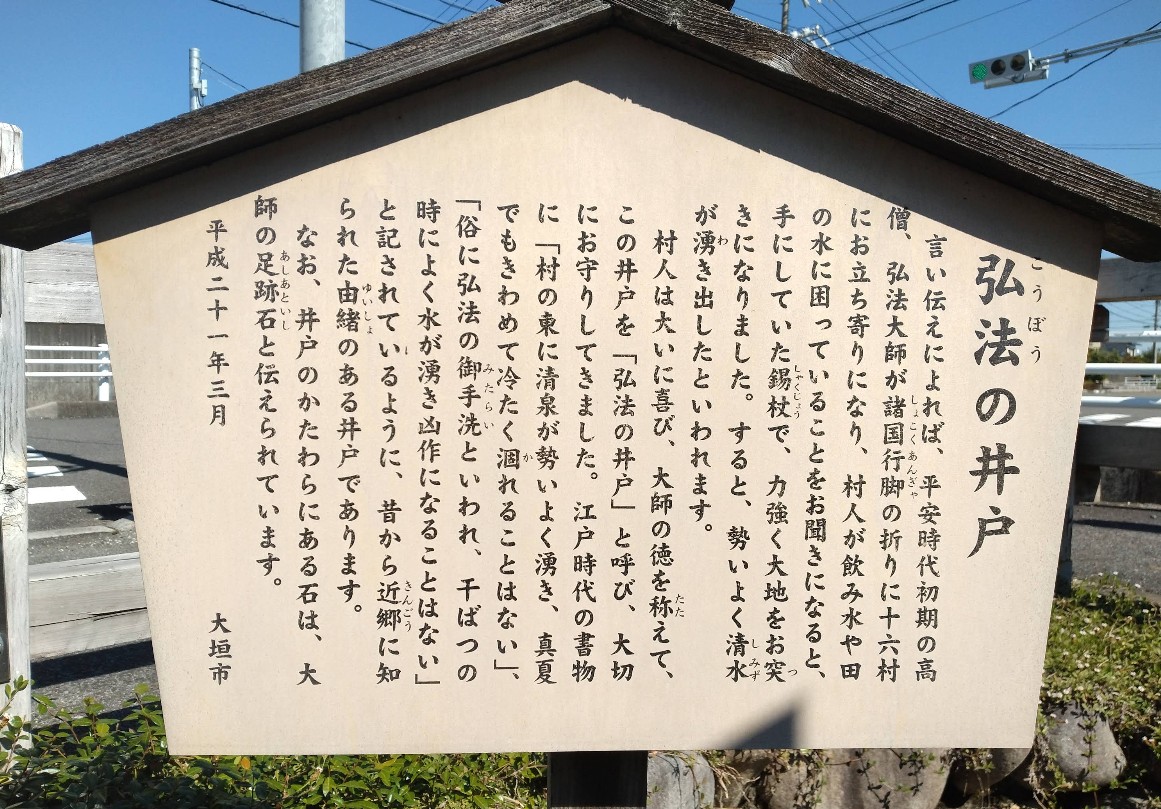 弘法の井戸
言い伝えによれば、平安時代初期の高
僧、弘法大師が諸国行脚の折りに十六村
にお立ち寄りになり、村人が飲み水や田
の水に困っていることをお聞きになると、
手にしていた錫杖で、力強く大地をお突
きになりました。すると、勢いよく清水
が湧き出したといわれます。
村人は大いに喜び、大師の徳を称えて、
この井戸を「弘法の井戸」と呼び、大切
にお守りしてきました。江戸時代の書物
に「村の東に清泉が勢いよく湧き、真夏
でもきわめて冷たく涸れることはない」、
「俗に弘法の御手洗といわれ、干ばつの
時によく水が湧き凶作になることはない」
と記されているように、昔から近郷に知
られた由緒のある井戸であります。
なお、井戸のかたわらにある石は、大
師の足跡石と伝えられています。
平成二十一年三月 大垣市